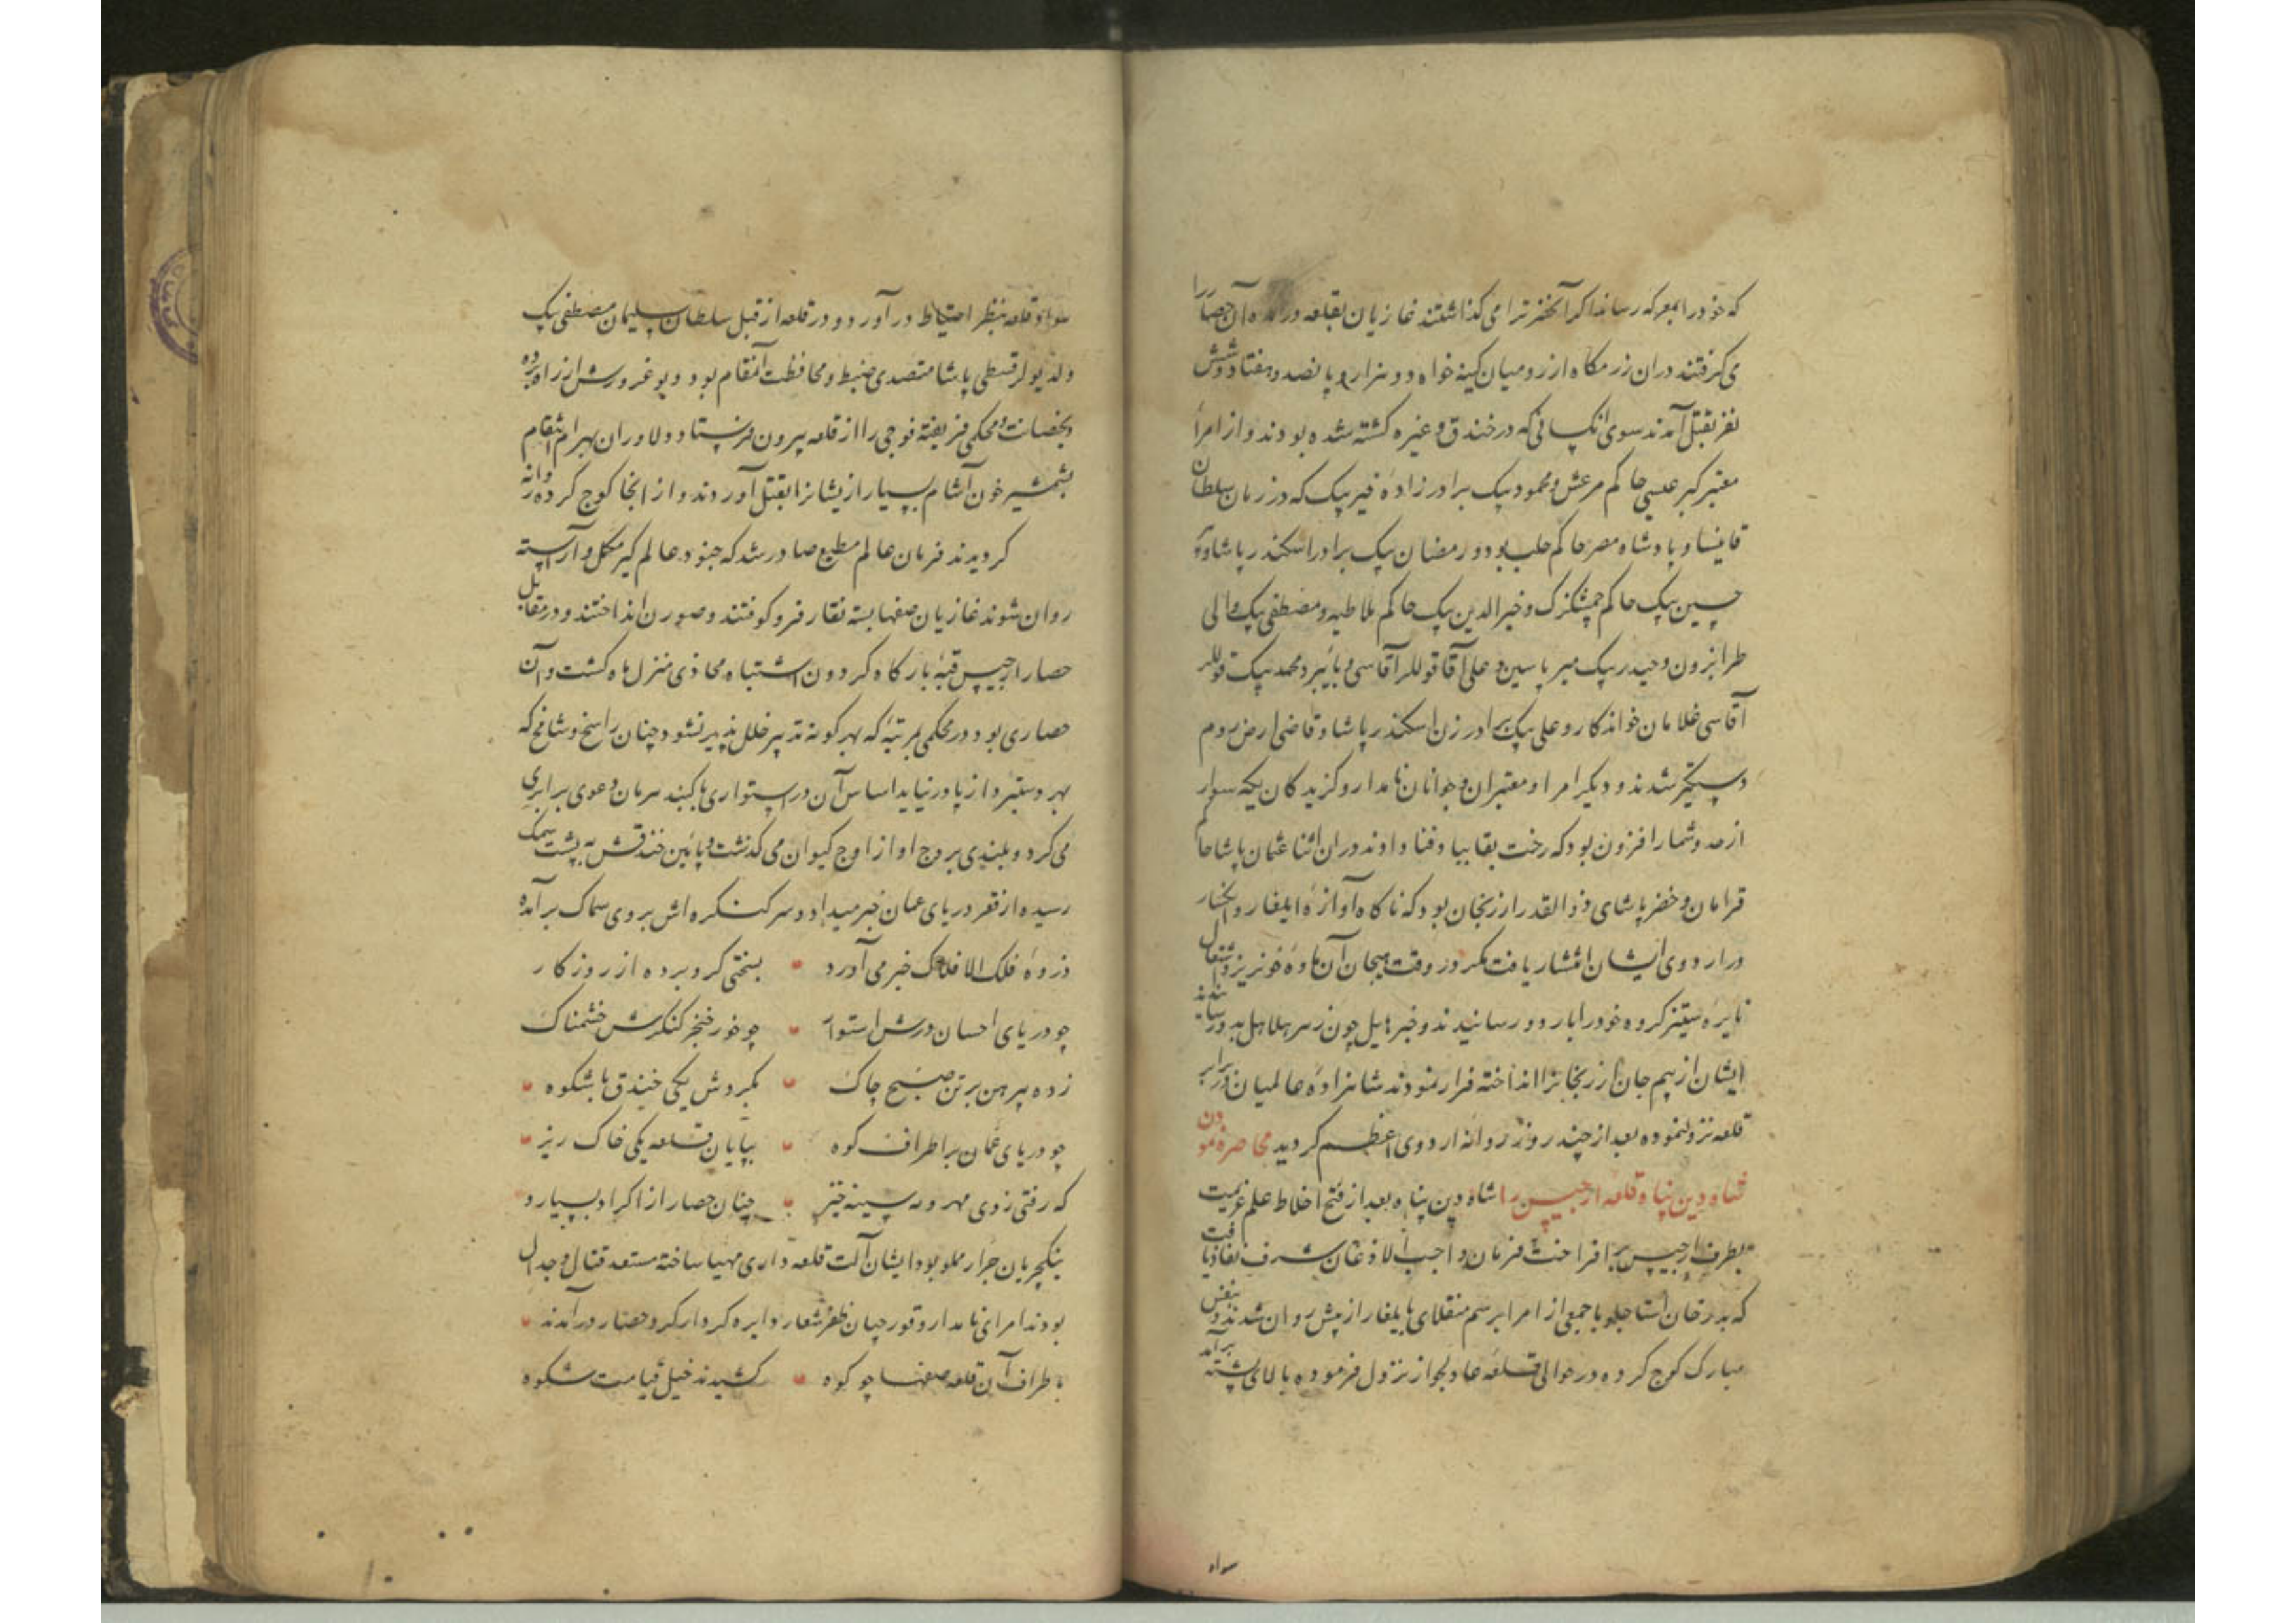 که خود را بمعرکه رساند اکر آنحضرت را می کذاشتند غازیان بقلعه در آمده آن حصار را
می کرفتند دران رزمکاه از رومیان کینه خواه دو هزار و پانصد و هفتاد و شش
نفر بقتل آمدند سوی آنکسانی که در خندق و غیره کشته شده بودند و از امرأ
معتبر کبر عیسی حاکم مرعش و محمود بیک برادر زادهٔ خیر بیک که در زمان سلطان
قانیساو پادشاه مصر حاکم حلب بود و رمضان بیک برادر اسکندر پاشا و
حسین بیک حاکم چمشکزک و خیر الدین بیک حاکم ملاطیه و مصطفی بیک والی
طرابزون و حیدر بیک میر پاسین و علی آقا قوللر آقاسی و محمد بیک قوللر
آقاسی غلامان خواندکار و علی بیک برادر زن اسکندر پاشا و قاضی ارض روم
دستکیر شدند و دیکر امرا و معتبران و جوانان نامدار و کزیدکان یکه سوار
از حد و شمار افزون بود که رخت بقا بباد فنا دادند دران اثنا عثمان پاشا حاکم
قرامان و خضر پاشای ذو القدر ارزنجان بود که ناکاه آوازهٔ ایلغار
در اردوی ایشان انتشار یافت مکر در وقت هیجان آن مادهٔ خونریز و اشتعال
نایرهٔ ستیز کروه خود را باردو رسانیدند و خبر هایل چون زهر هلاهل بدو رسانیدند
ایشان از بیم جان ارزنجانرا انداخته فرار نمودند شاهزادهٔ عالمیان در برابر
قلعه نزول نموده بعد از چند روز روانه اردوی اعظم کردید محاصره نمودن
شاه دین پناه قلعه ارجیس را شاه دین پناه بعد از فتح اخلاط علم عزیمت
بطرف ارجیس بر افراخت فرمان واجب الاذعان شرف نفاذ یافت
که بدر خان استاجلو با جمعی از امرا برسم منقلای بایلغار از پیش روان شدند و بنفس
مبارک کوچ کرده در حوالی قلعه عادلجواز نزول فرموده بالای پشته بر آمد
سواد
سواد قلعه بنظر احتیاط در آورد و در قلعه از قبل سلطان سلیمان مصطفی بیک
ولد پاشا متصدی ضبط و محافظت آنمقام بود دیو غرورش از راه برده
بحصانت و محکمی فریفته فوجی را از قلعه بیرون فرستاد دلاوران بهرام انتقام
بشمشیر خون آشام بسیار از یشانرا بقتل آوردند و از انجا کوچ کرده روانه
کردیدند فرمان عالم مطیع صادر شد که جنود عالم کیر مکمل و آراسته
روان شوند غازیان صفها بسته نقاره فرو کوفتند و صورن انداختند و در مقابل
حصار ارجیس قبهٔ بارکاه کردون اشتباه محاذی منزل ماه کشت و آن
حصاری بود در محکمی بمرتبهٔ که بهر کونه تدبیر خلل پذیر نشود چنان راسخ و شامخ که
بهر دستبرد از پا در نیاید اساس آن در استواری با کنبد هرمان دعوی برابری
می کرد و بلندی بروج او از اوج کیوان می کذشت و پائین خندقش به پشت سمک
رسیده از قعر دریای عمان خبر میداد و سر کنکره اش بروی سماک بر آمده
ذروهٔ فلک الافلاک خبر می آورد بسختی کرو برده از روزکار
چو دریای احسان درش استوار چو خور خنجر کنکرش خشمناک
زده پیرهن بر تن صبح چاک بکردش یکی خندق با شکوه
چو دریای عمان بر اطراف کوه بپایان قلعه یکی خاک ریز
که رفتی ز وی مهر و مه سینه خیز چنان حصار از اکراد بسیار و
ینکچریان جرار مملو بود ایشان آلت قلعه داری مهیا ساخته مستعد قتال و جدال
بودند امرای نامدار و قورچیان ظفر شعار دایره کردار کرد حصار در آمدند
باطراف آن قلعه صفها چو کوه کشیدند خیل قیامت شکوه